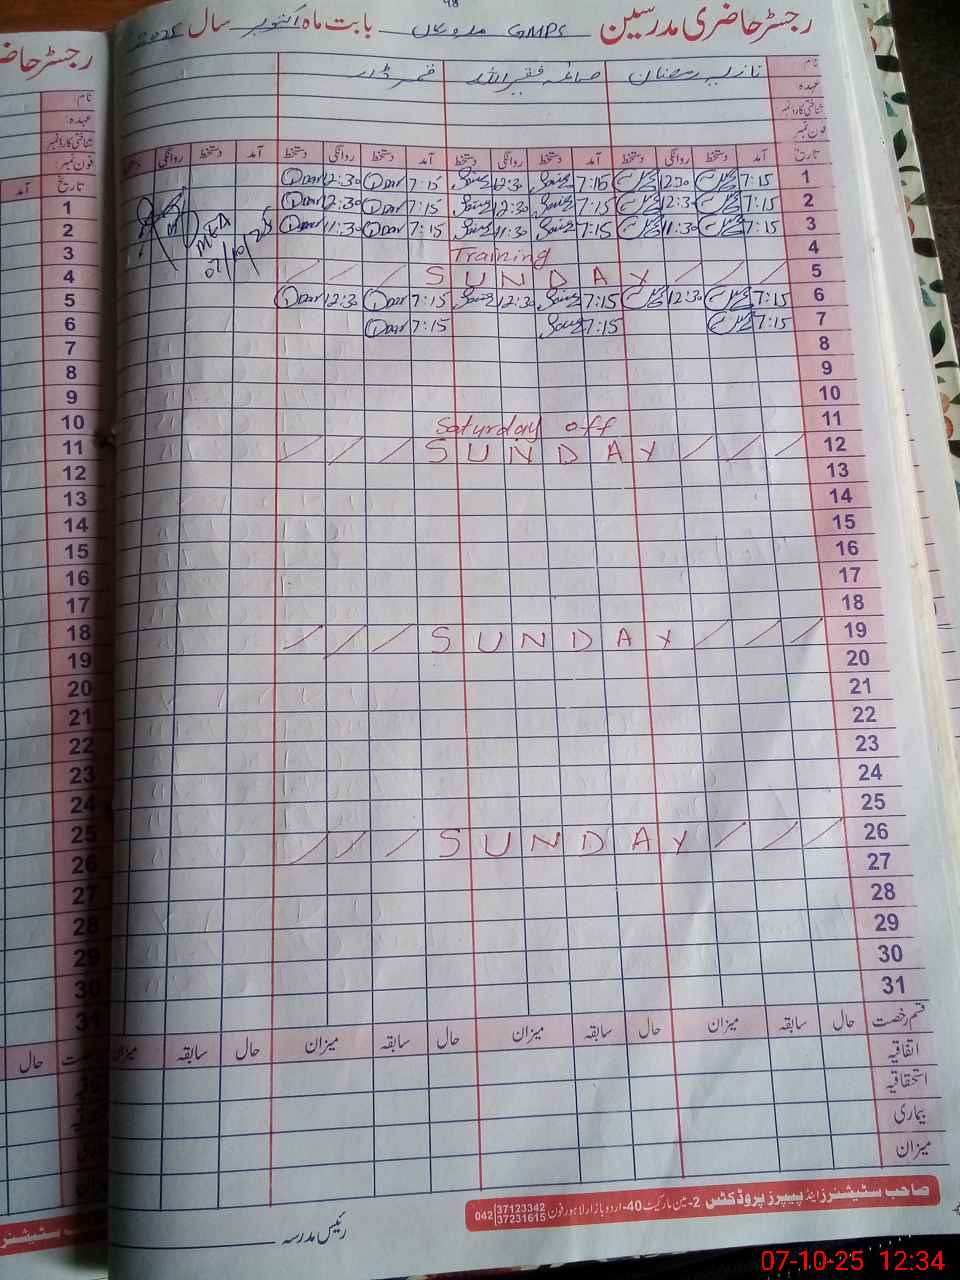 رجسٹر حاضری مدرسین GMPS بابت ماہ اکتوبر سال 2025
نام نازیہ رمضان صائمہ فقیر اللہ قمر ڈار
عہدہ
شناختی کارڈ نمبر
فون نمبر
تاریخ آمد دستخط روانگی دستخط آمد دستخط روانگی دستخط آمد دستخط روانگی دستخط آمد دستخط روانگی
1 7:15 12:30 7:15 12:30 7:15 12:30
2 7:15 12:30 7:15 12:30 7:15 12:30
3 7:15 11:30 7:15 11:30 7:15 11:30
MEA
07/10/25
4 Training
5 SUNDAY
6 7:15 12:30 7:15 12:30 7:15 12:30
7 7:15 7:15 7:15
8
9
10
11 Saturday off
12 SUNDAY
13
14
15
16
17
18
19 SUNDAY
20
21
22
23
24
25
26 SUNDAY
27
28
29
30
31
قسم رخصت حال سابقہ میزان حال سابقہ میزان حال سابقہ میزان حال سابقہ میزان
اتفاقیہ
استحقاقیہ
بیماری
میزان
صاحب سٹیشنرز اینڈ پیپرز پروڈکٹس 2-مین مارکیٹ 40-اردو بازار لاہور فون 042 37123342 37231615
رئیس مدرسہ
رجسٹر حاض
نام:
عہدہ:
شناختی کارڈ نمبر
فون نمبر:
تاریخ آمد
1
2
3
4
5
6
7
8
9
10
11
12
13
14
15
16
17
18
19
20
21
22
23
24
25
26
27
28
29
30
31
حال
07-10-25 12:34